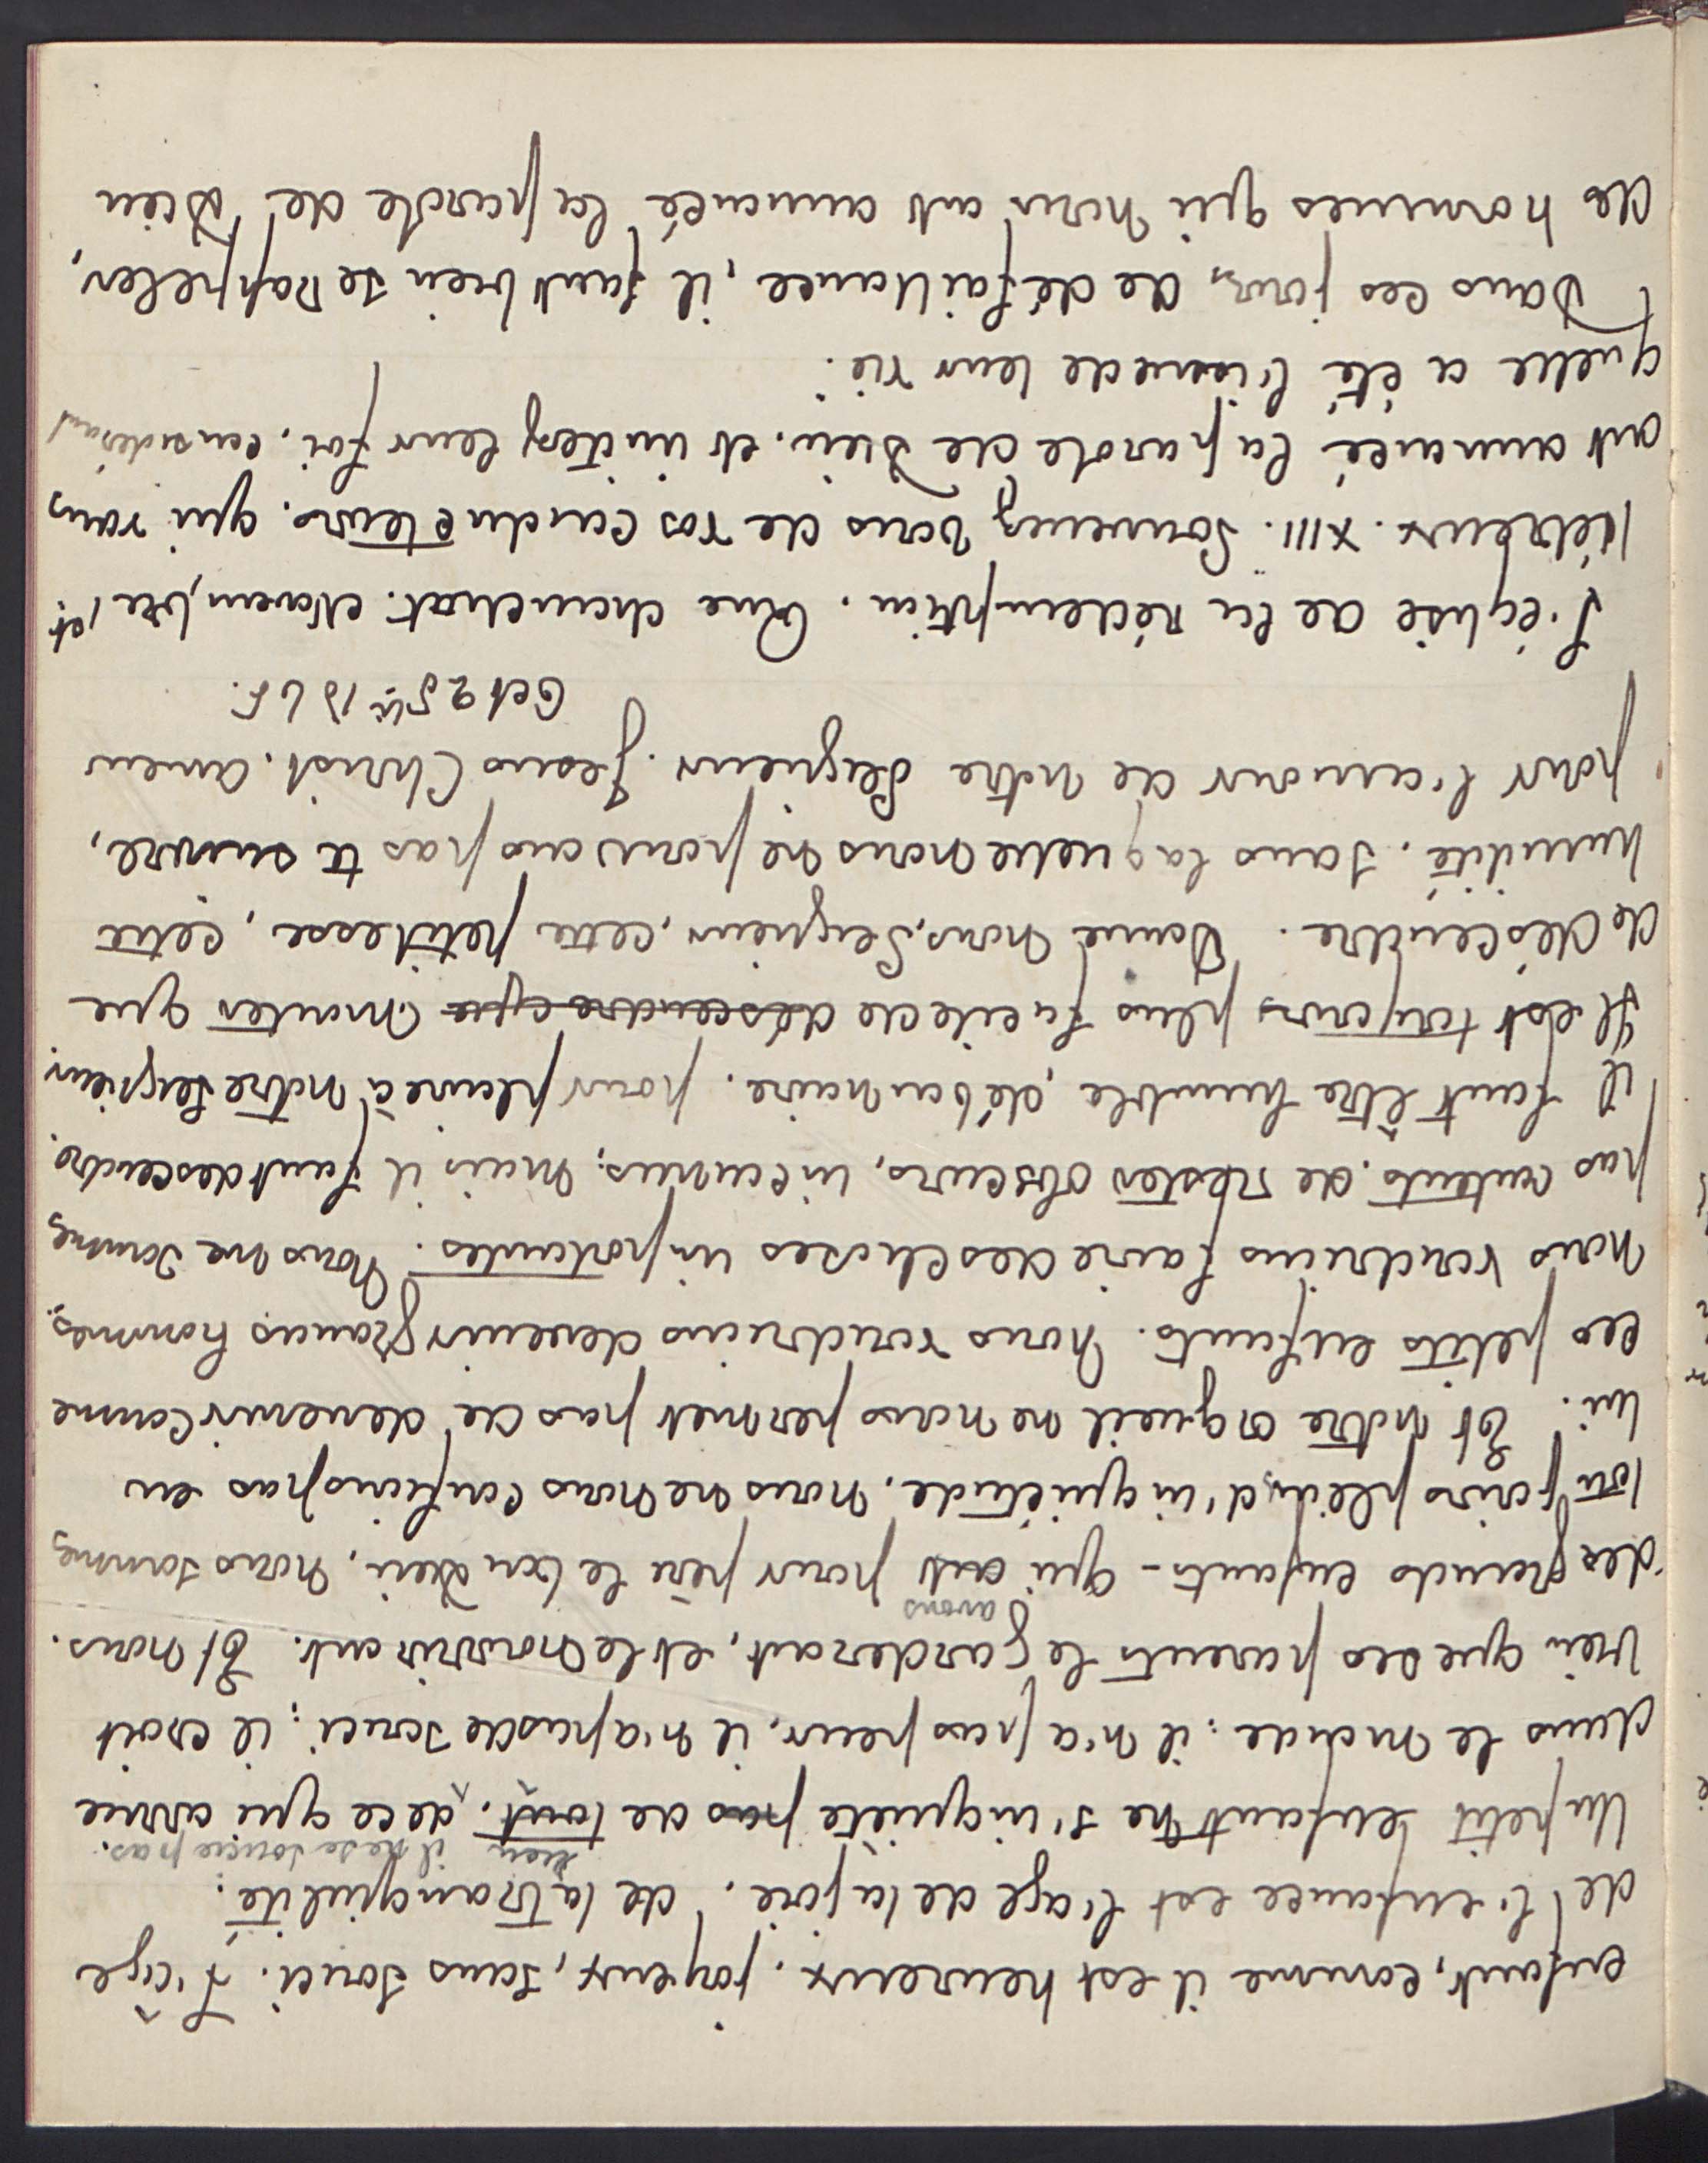 enfant, comme il est heureux, joyeux, sans souci. L'âge
de l'enfance est l'age de la joie, de la tranquilité:
rien il ne se soucie pas.
Un petit enfant ne s'inquiète pas de tout, de ce qui arrive
dans le monde: il n'a pas peur, il n'a pas de souci: il croit
bien que ses parents le garderont, et le nourriront. Et nous.
avons
des grands enfants - qui ont pour père le bon Dieu, nous sommes
toujours pleins d'inquiétude, nous ne nous confions pas en
lui. Et notre orgueil ne nous permet pas de devenir comme
les petits enfants. Nous voudrions devenir grands hommes,
nous voudrions faire des choses importantes. Nous ne sommes
pas contents de rester obscurs, inconnus; mais il faut descendre.
il faut être humble, débonnaire, pour plaire à notre Seigneur
Il est toujours plus facile de descendre que monter que
de descendre. Donne nous, Seigneur, cette petitesse, cette
humilité, sans laquelle nous ne pouvons pas te suivre,
pour l'amour de notre Seigneur Jesus Christ. Amen
Oct 25
L'église de la rédemption. Rue chauchat. Novembre 1er
Hébreux. XIII. Souvenez vous de vos conducteurs, qui vous
ont annoncé la parole de Dieu, et imitez leur foi, considérant
quelle a été l'issue de leur vie.
Dans ces jours de défaillance, il faut bien se rappeler,
des hommes qui nous ont annoncé la parole de Dieu